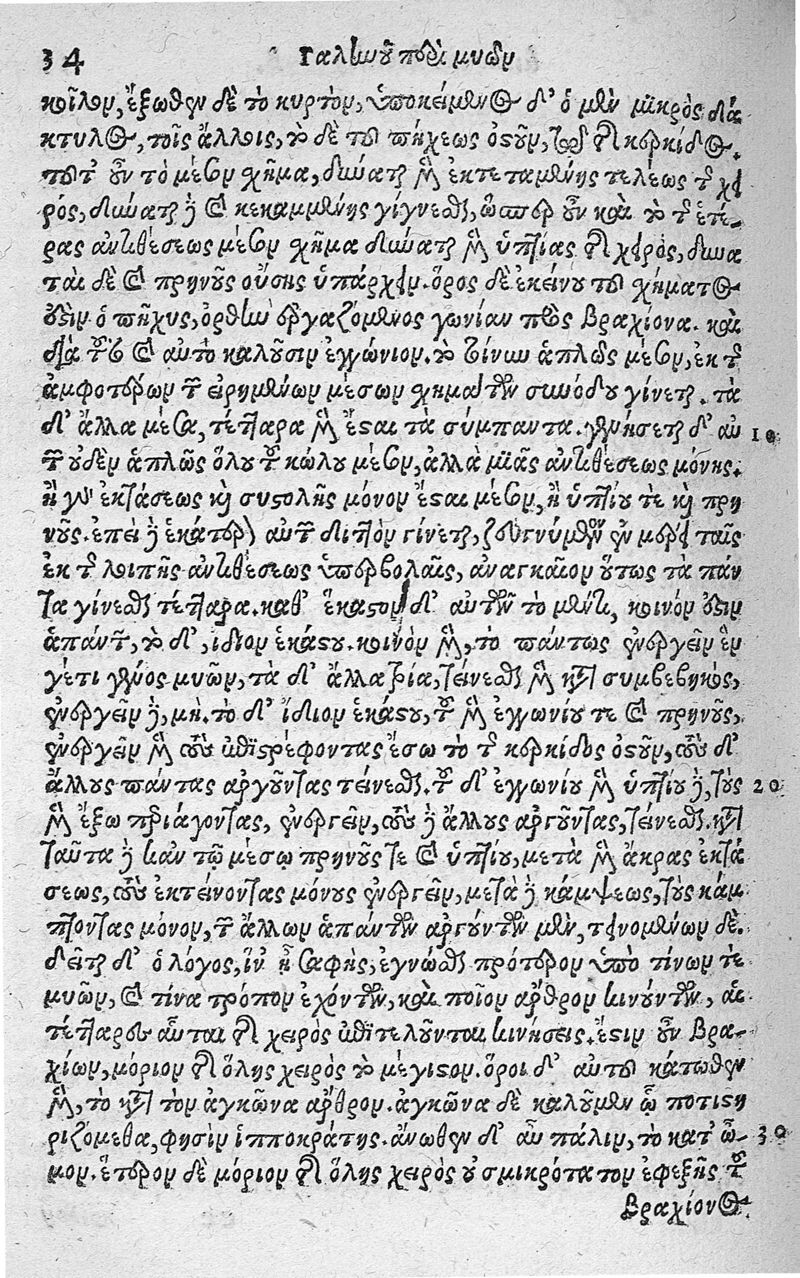 34 Γαλιηνοῦ περὶ μυῶν
κοῖλον, ἔξωθεν δὲ τὸ κυρτὸν, ὑποκείμενος δ' ὁ μὲν μικρὸς δά
κτυλος, τοῖς ἄλλοις, τὸ δὲ τοῦ πήχεως ὀστοῦν, τῷ τῆς κερκίδος.
τοῦτ' οὖν τὸ μέσον σχῆμα, δύναται μὲν ἐκτεταμένης τελέως τῆς χει
ρός, δύναται δὲ καὶ κεκαμμένης γίγνεσθαι, ὥσπερ οὖν καὶ τὸ τῆς ἑτέ-
ρας ἀντιθέσεως μέσον σχῆμα δύναται μὲν ὑπτίας τῆς χειρὸς, δύνα
ται δὲ καὶ πρηνοῦς οὔσης ὑπάρχειν. ὅρος δὲ ἐκείνου τοῦ σχήματος
ἐστὶν ὁ πῆχυς, ὀρθὴν ἐργαζόμενος γωνίαν πρὸς βραχίονα. καὶ
διὰ τοῦτο καὶ αὐτὸ καλοῦσιν ἐγγώνιον. τὸ τοίνυν ἁπλῶς μέσον, ἐκ τῆς
ἀμφοτέρων τῶν εἰρημένων μέσων σχημάτων συνόδου γίνεται. τὰ
δ' ἄλλα μέσα, τέτταρα μὲν ἔσται τὰ σύμπαντα. γενήσεται δ' αὐ 10
τῶν οὐδὲν ἁπλῶς ὅλου τοῦ κώλου μέσον, ἀλλὰ μιᾶς ἀντιθέσεως μόνης.
ἢ γὰρ ἐκτάσεως καὶ συστολῆς μόνον ἔσται μέσον, ἢ ὑπτίου τε καὶ πρη
νοῦς. ἐπεὶ δὲ ἑκάτερον αὐτῶν διττὸν γίνεται, ζευγνύμενον ἐν μέρει ταῖς
ἐκ τῆς λοιπῆς ἀντιθέσεως ὑπερβολαῖς, ἀναγκαῖον οὕτως τὰ πάν
τα γίνεσθαι τέτταρα. καθ' ἕκαστον δ' αὐτῶν τὸ μέν τι, κοινόν ἐστιν
ἁπάντων, τὸ δ', ἴδιον ἑκάστου. κοινὸν μὲν, τὸ πάντως ἐνεργεῖν ἕν
γέ τι γένος μυῶν, τὰ δ' ἄλλα τρία, τείνεσθαι μὲν κατὰ συμβεβηκὸς,
ἐνεργεῖν δὲ, μή. τὸ δ' ἴδιον ἑκάστου, τοῦ μὲν ἐγγωνίου τε καὶ πρηνοῦς,
ἐνεργεῖν μὲν τοὺς ἐπιστρέφοντας ἔσω τὸ τῆς κερκίδος ὀστοῦν, τοὺς δ'
ἄλλους πάντας ἀργοῦντας τείνεσθαι. τοῦ δ' ἐγγωνίου μὲν ὑπτίου δὲ, τοὺς 20
μὲν ἔξω περιάγοντας, ἐνεργεῖν, τοὺς δὲ ἄλλους ἀργοῦντας, τείνεσθαι. κατὰ
ταῦτα δὲ κἀν τῷ μέσῳ πρηνοῦς τε καὶ ὑπτίου, μετὰ μὲν ἄκρας ἐκτά
σεως, τοὺς ἐκτείνοντας μόνους ἐνεργεῖν, μετὰ δὲ κάμψεως, τοὺς κάμ
πτοντας μόνον, τῶν ἄλλων ἁπάντων ἀργούντων μὲν, τεινομένων δέ.
δεῖται δ' ὁ λόγος, ἵν' ᾖ σαφὴς, ἐγνῶσθαι πρότερον ὑπὸ τίνων τε
μυῶν, καὶ τίνα τρόπον ἐχόντων, καὶ ποῖον ἄρθρον κινούντων, αἱ
τέτταρες αὗται τῆς χειρὸς ἐπιτελοῦνται κινήσεις. ἔστιν οὖν βρα-
χίων, μόριον τῆς ὅλης χειρὸς τὸ μέγιστον. ὅροι δ' αὐτοῦ κάτωθεν
μὲν, τὸ κατὰ τὸν ἀγκῶνα ἄρθρον. ἀγκῶνα δὲ καλοῦμεν ᾧ ποτιστη
ριζόμεθα, φησὶν ἱπποκράτης. ἄνωθεν δ' αὖ πάλιν, τὸ κατ' ὦ- 30
μον. ἕτερον δὲ μόριον τῆς ὅλης χειρὸς οὐ σμικρότατον ἐφεξῆς τοῦ
βραχίονος.